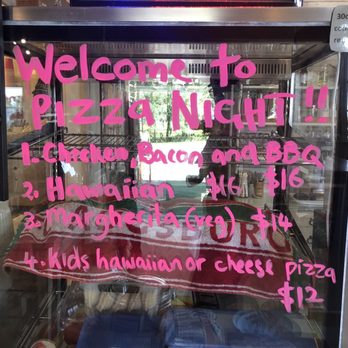 Welcome to
Pizza Night!!
1. Chicken, Bacon and BBQ
$16
2. Hawaiian $16
3. Margherita (veg) $14
4. Kids hawaiian or cheese pizza
$12